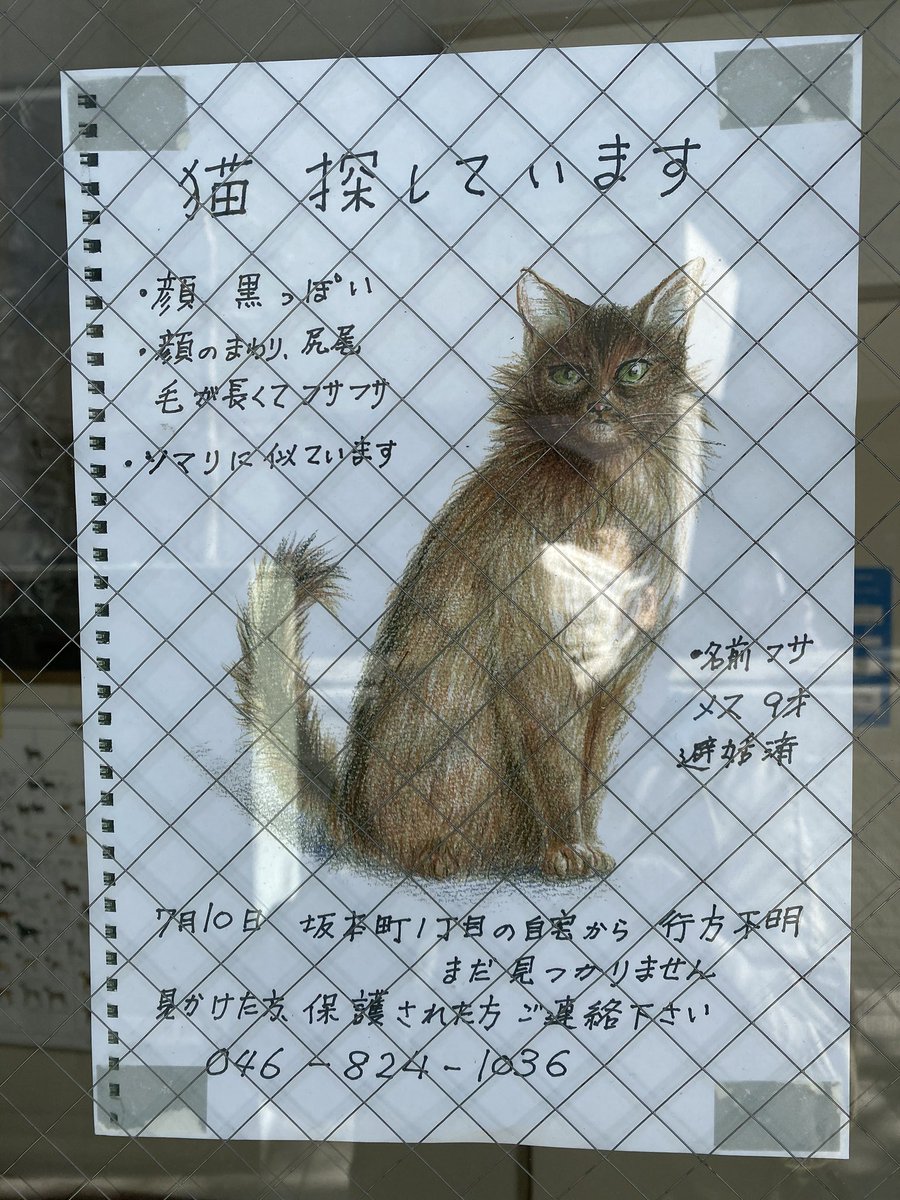 猫 探しています
・顔 黒っぽい
・顔のまわり、尻尾
毛が長くてフサフサ
・ソマリに似ています
・名前 フサ
メス 9才
避妊済
7月10日 坂本町1丁目の自宅から 行方不明
まだ見つかりません
見かけた方、保護された方 ご連絡下さい
046-824-1036